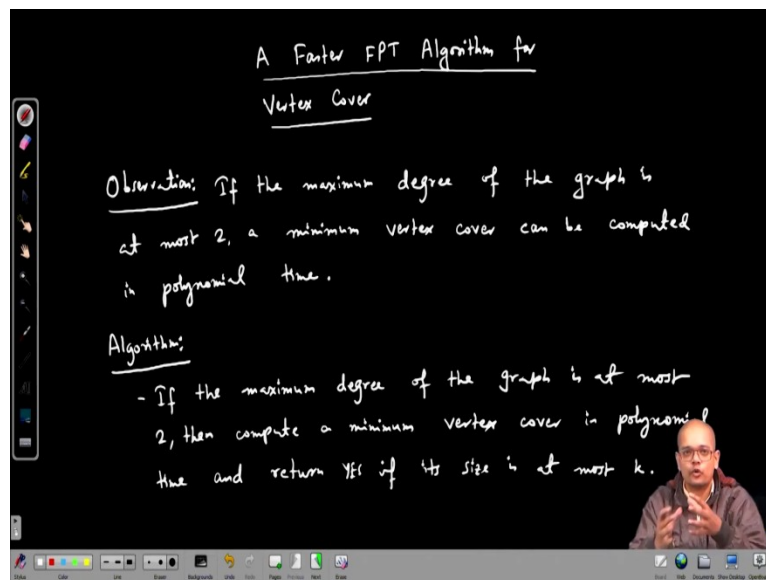 A Faster FPT Algorithm for
Vertex Cover
Observation: If the maximum degree of the graph is
at most 2, a minimum vertex cover can be computed
in polynomial time.
Algorithm:
- If the maximum degree of the graph is at most
2, then compute a minimum vertex cover in polynomial
time and return YES if its size is at most k.
Status Color Line Eraser Backgrounds Undo Redo Pages Previous Next Erase Board Web Documents Show Desktop